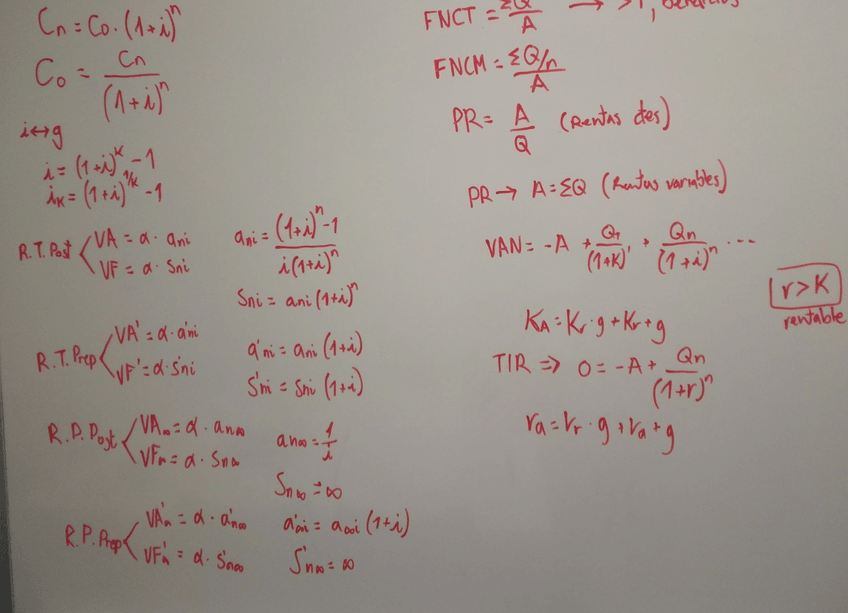 Cn = Co · (1+i)^n
Co = Cn / (1+i)^n
i↔g
i = (1+i)^k - 1
iK = (1+i)^1/k - 1
R.T. Post < VA = α · ani
VF = α · Sni
ani = (1+i)^n - 1 / i(1+i)^n
Sni = ani (1+i)^n
R.T. Prep < VA' = α · a'ni
VF' = α · S'ni
a'ni = ani (1+i)
S'ni = Sni (1+i)
R.P. Post < VA∞ = α · an∞
VFn = α · Sn∞
an∞ = 1 / i
Sn∞ = ∞
R.P. Prep < VA'n = α · a'n∞
VF'n = α · S'n∞
a'∞i = a∞i (1+i)
S'n∞ = ∞
FNCT = ΣQ / A → >1,
FNCM = ΣQ/n / A
PR = A / Q (Rentas ctes)
PR → A = ΣQ (Rentas variables)
VAN = -A + Q1 / (1+K)^1 + Qn / (1+i)^n ...
r > K
rentable
KA = Kr · g + Kr + g
TIR => 0 = -A + Qn / (1+r)^n
ra = rr · g + ra + g